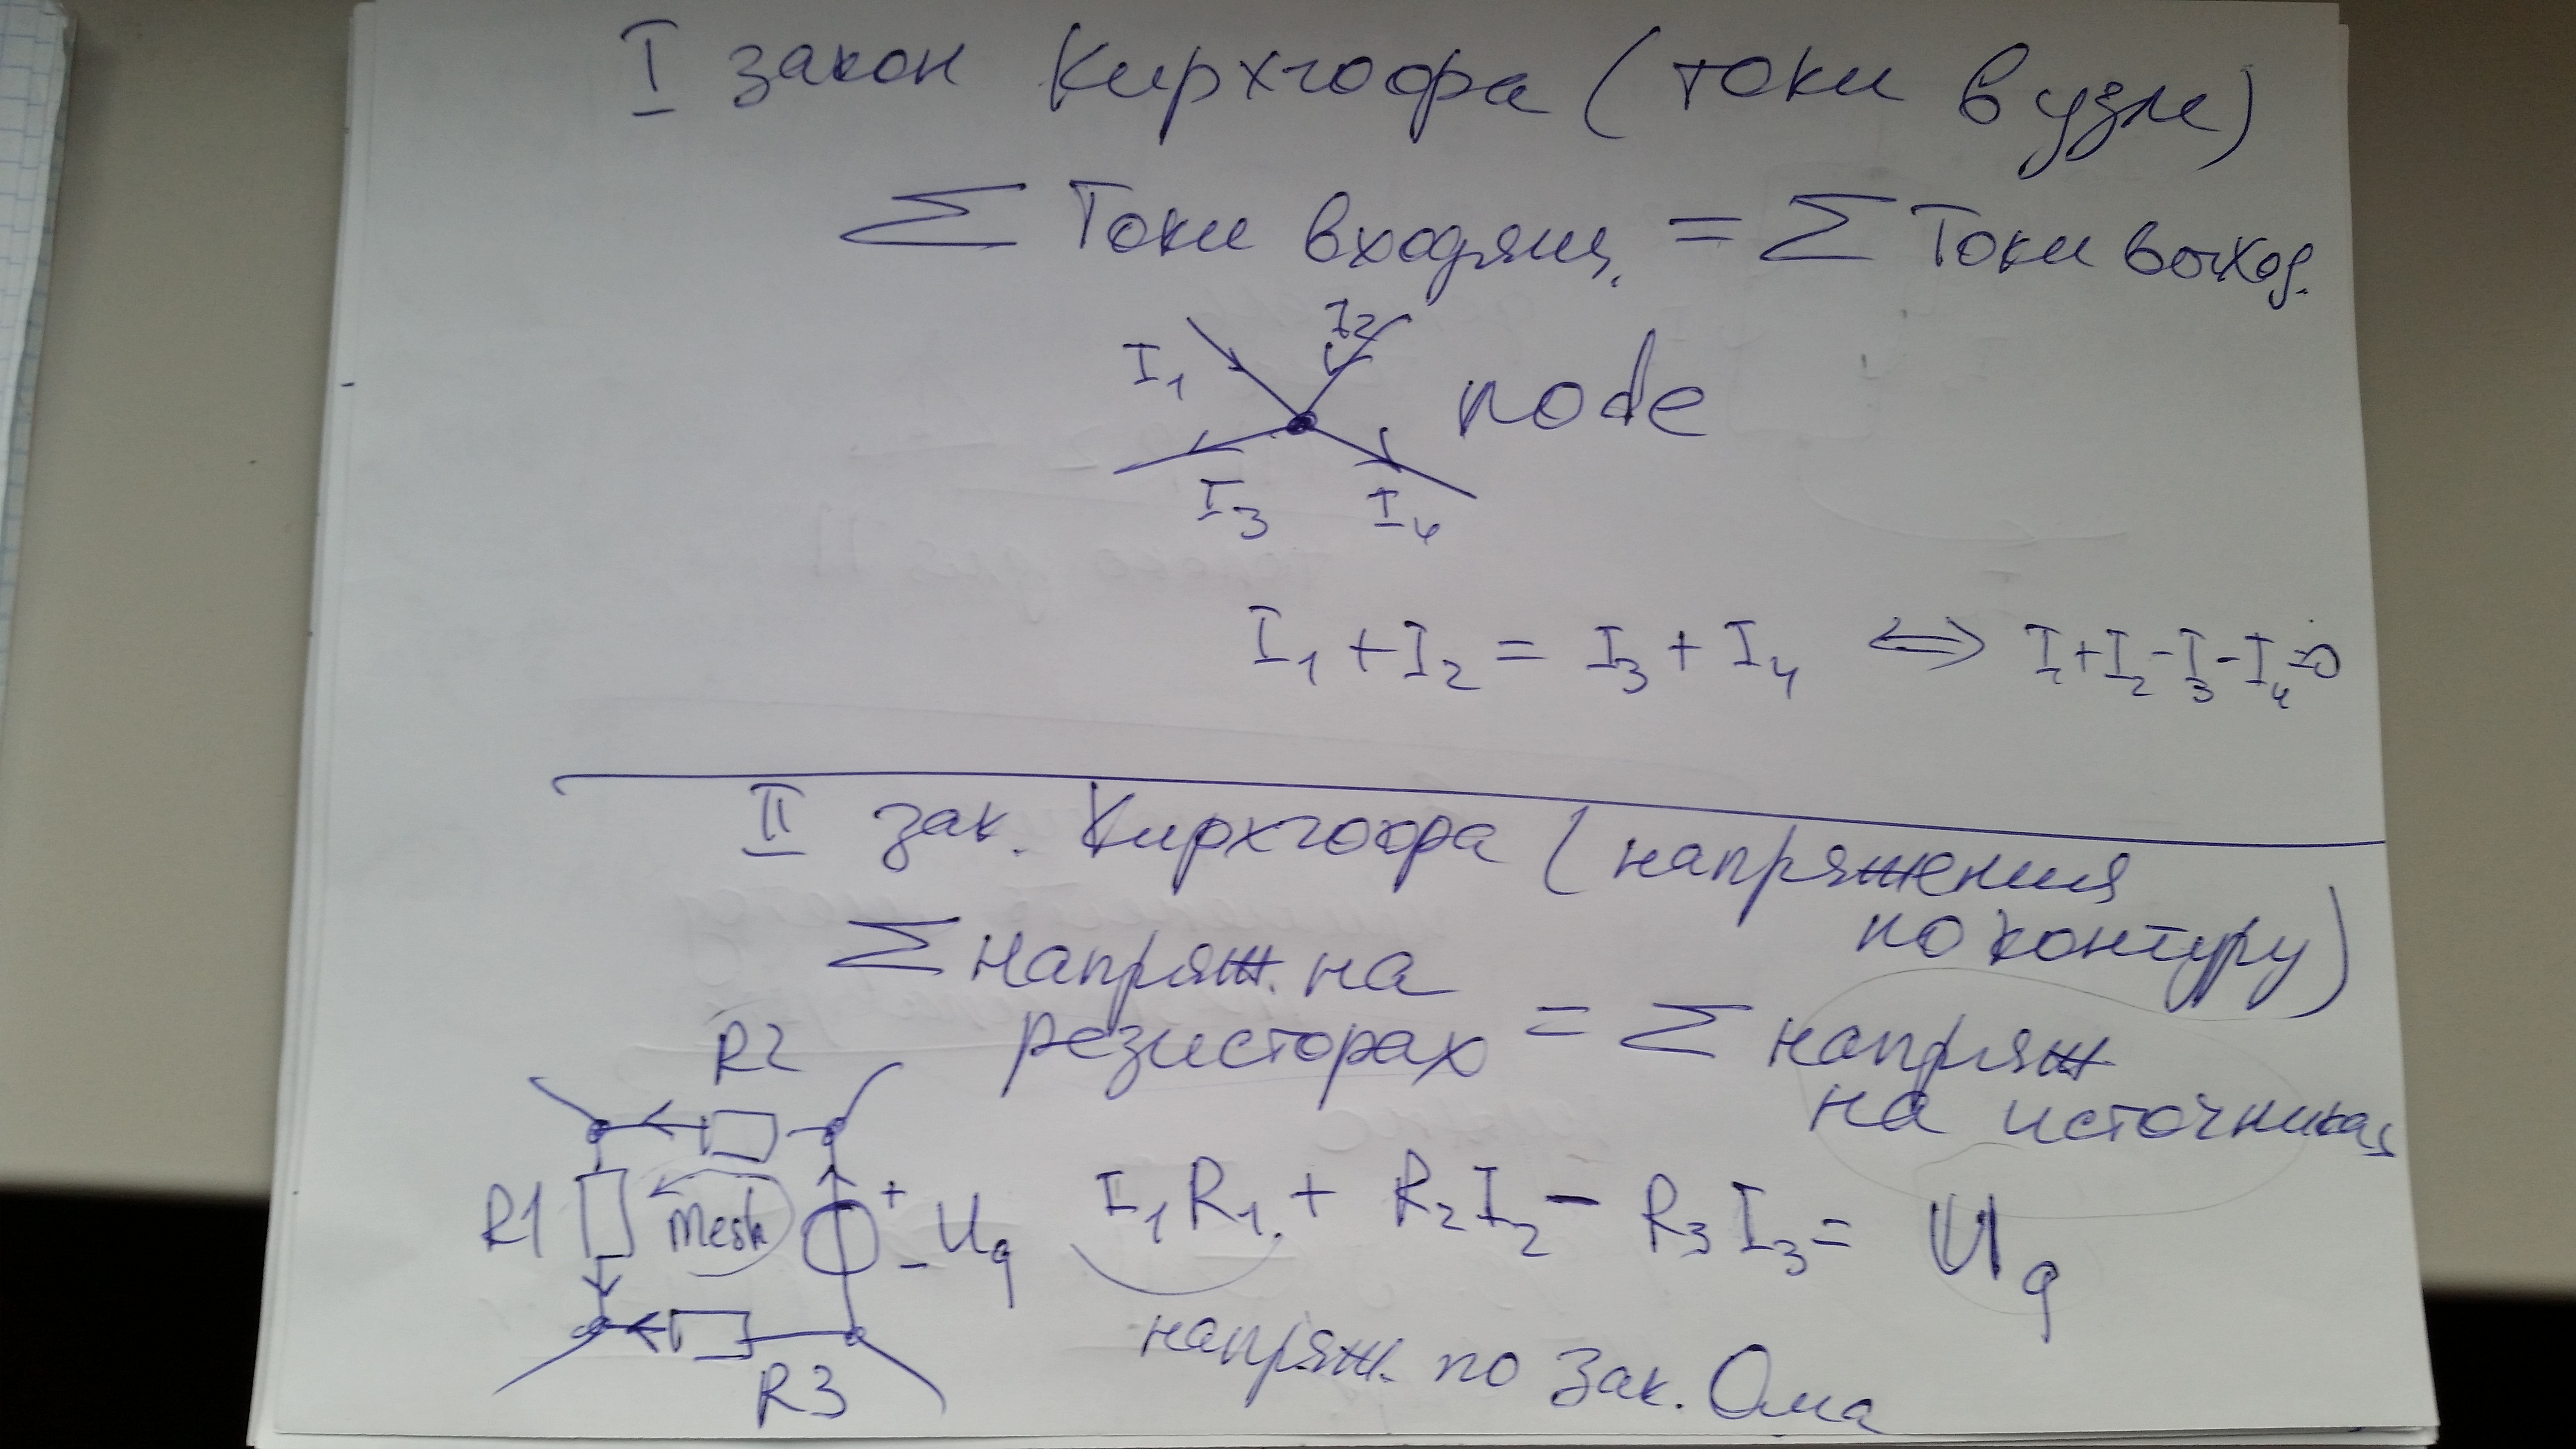 I закон Кирхгофа (токи в узле)
∑ Токи входящ. = ∑ Токи выход.
I₁ I₂
node
I₃ I₄
I₁ + I₂ = I₃ + I₄ ⟺ I₁+I₂-I₃-I₄=0
II зак. Кирхгофа (напряжения
по контуру)
∑ напряж. на
резисторах = ∑ напряж
на источниках
R2
R1 Mesh + - Uq
R3
I₁R₁ + R₂I₂ - R₃I₃ = Uq
напряж. по зак. Ома